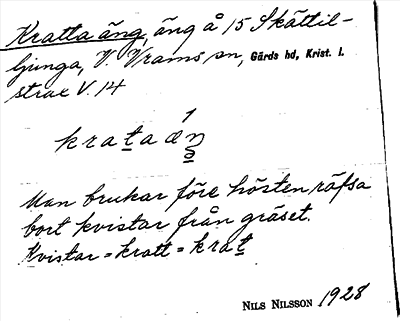 Kratta äng, äng å 15 Skättil-
ljunga, V. Vrams sn, Gärds hd, Krist. l.
strax V. 14
1
krataæŋ
Man brukar före hösten räfsa
bort kvistar från gräset.
Kvistar = kratt = krat
NILS NILSSON 1928